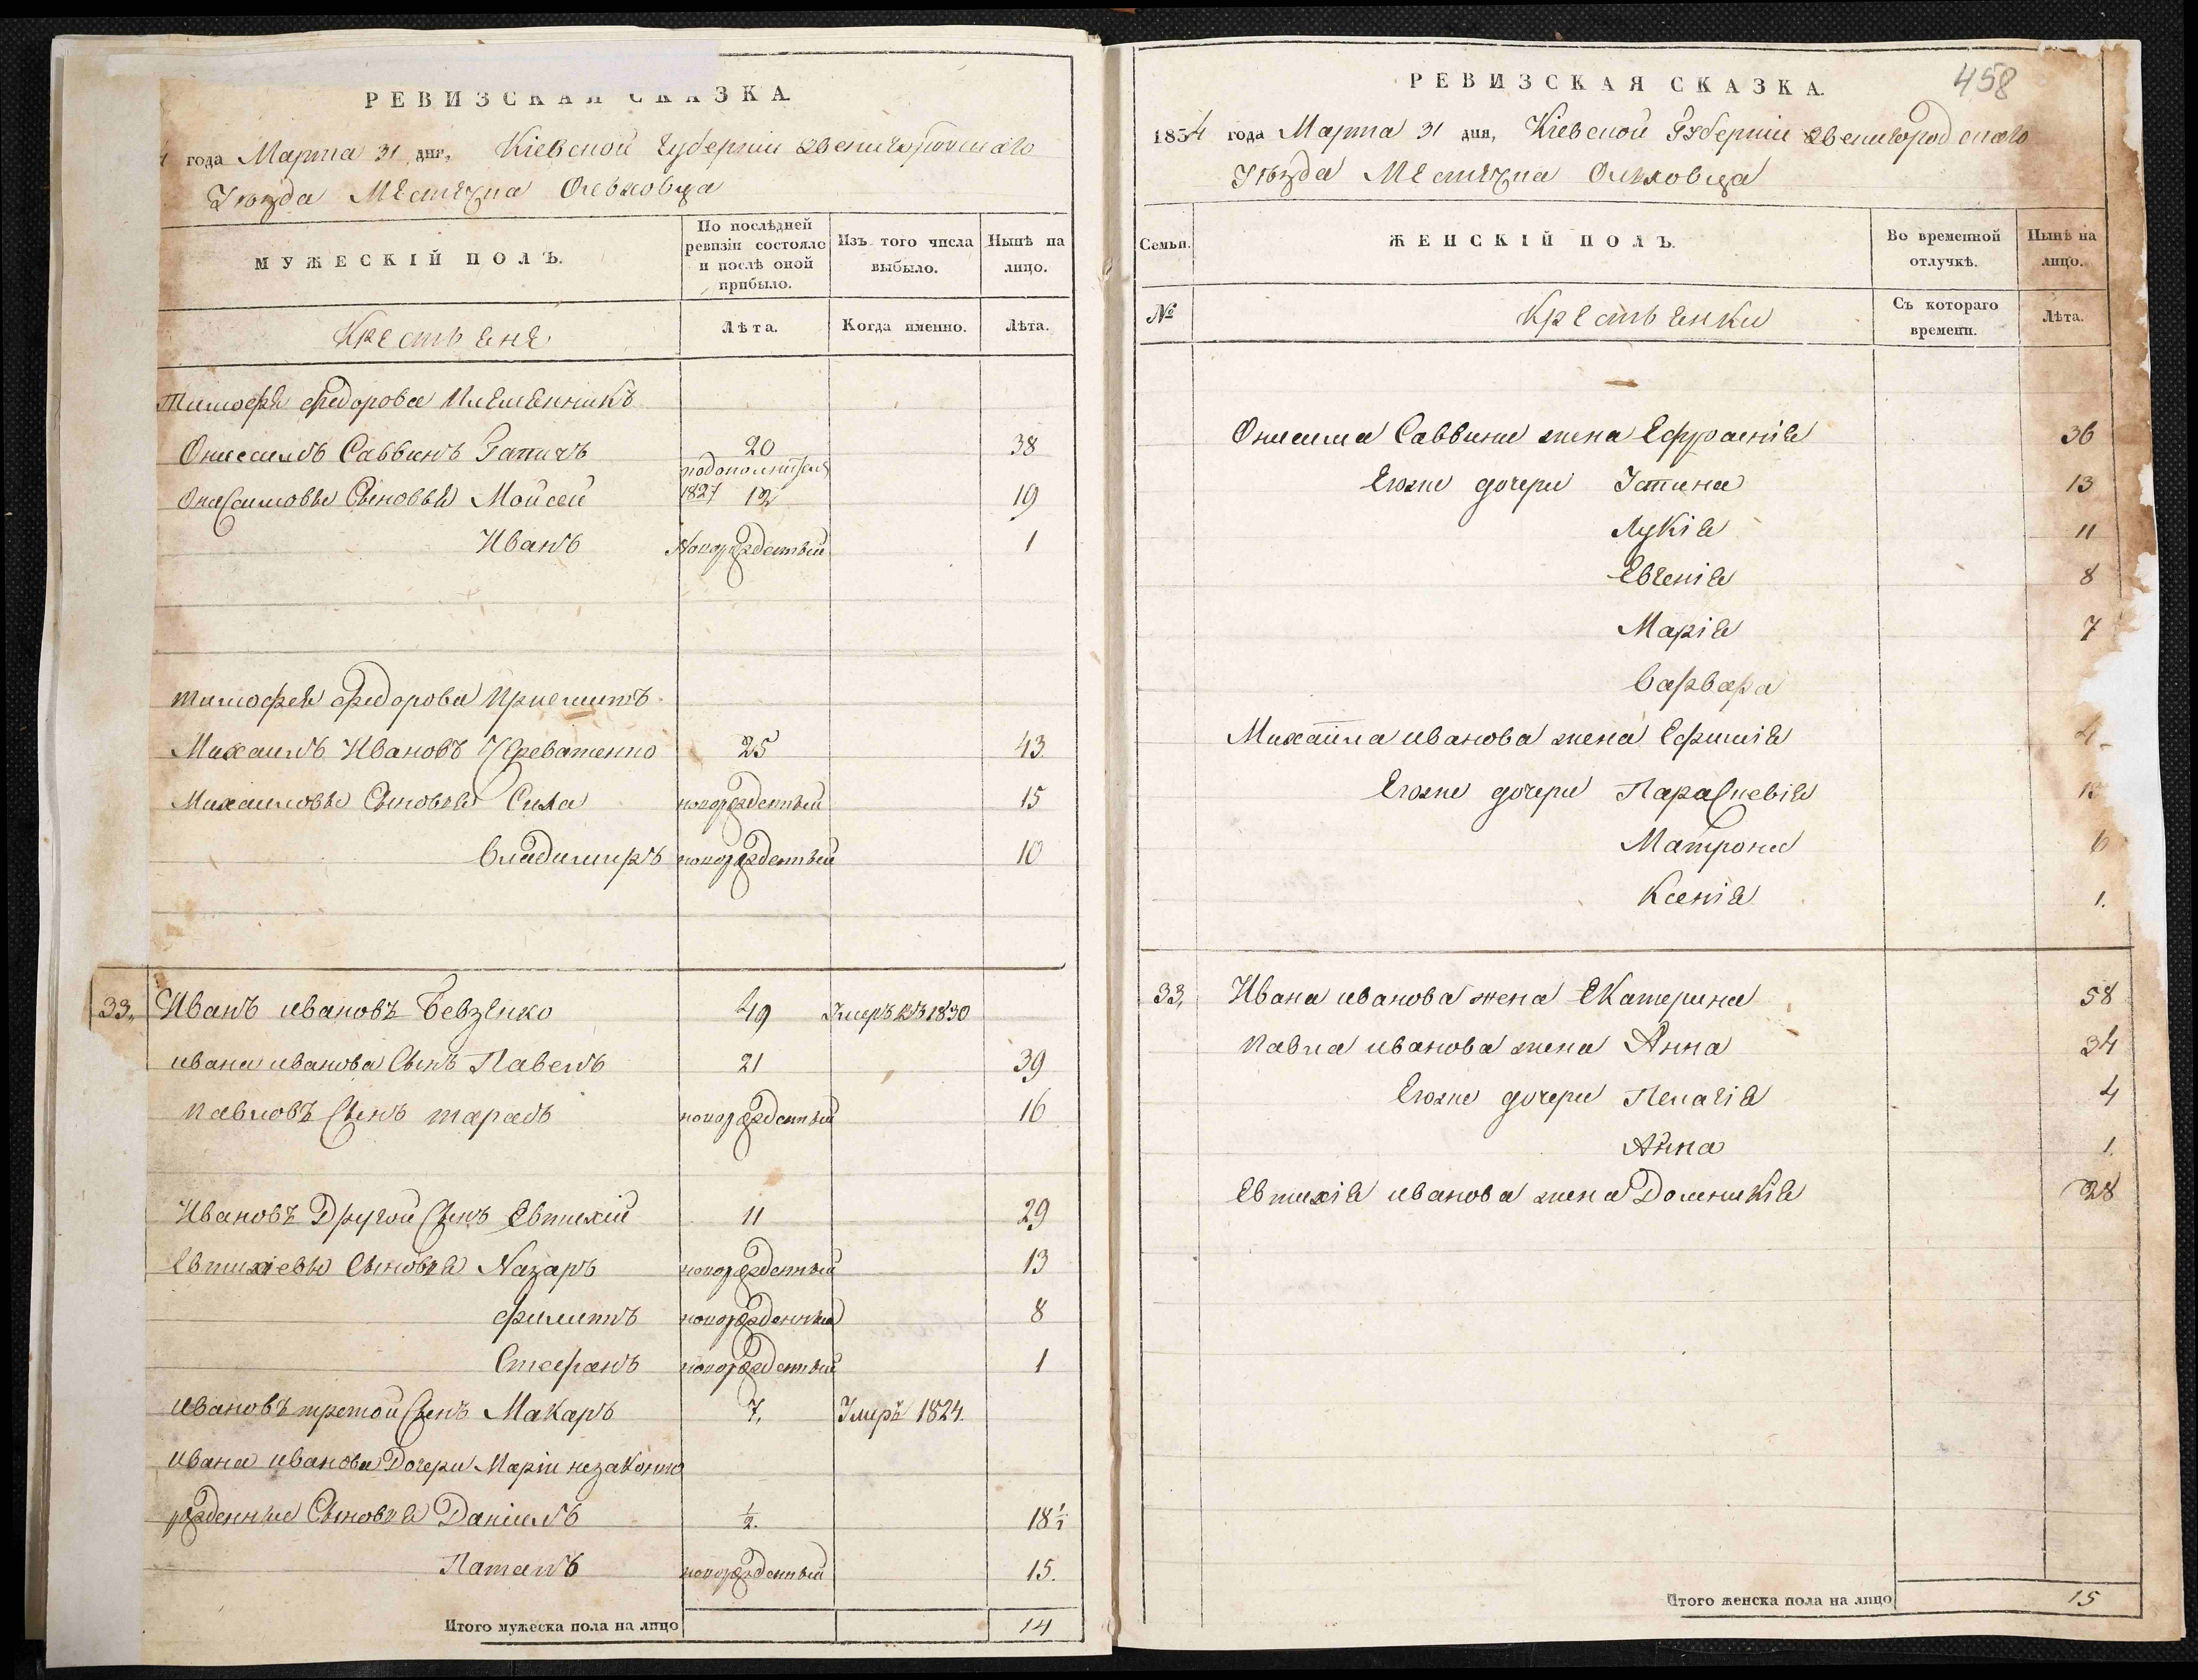 РЕВИЗСКАЯ СКАЗКА
года Марта 31 дня, Кіевской Губерніи Звенигородскаго
Уѣзда Местечка Ольховца
МУЖЕСКІЙ ПОЛЪ.
По послѣдней ревизіи состояло и послѣ оной прибыло.
Изъ того числа выбыло.
Нынѣ на лицо.
Крестьяне
Лѣта.
Когда именно.
Лѣта.
Тимофея Федорова Племенникъ
Онисимъ Саввинъ 20 38
подополнител
Онисимовы Сыновья Мойсей 1827 19
Иванъ Новорожденный 1
тимофея федорова Приемышъ
Михаилъ Ивановъ 25 43.
Михаиловы Сыновья Сила новорожденный 15
Владимиръ новорожденный 10
33, Иванъ ивановъ Бевзенко 49 Умеръ въ 1830
ивана иванова Сынъ Павелъ 21 39
павловъ Сынъ тарасъ новорожденный 16
Ивановъ Другой Сынъ Евтихій 11 29
Евтихіевы Сыновья Назаръ новорожденный 13
филипъ новорожденный 8
Стефанъ новорожденный 1
ивановъ третой Сынъ Макаръ 7, Умеръ 1824.
ивана иванова Дочери Маріи незаконно
рожденные Сыновья Даніилъ ½. 18½
Паталъ новорожденный 15.
Итого мужеска пола на лицо 14
458
РЕВИЗСКАЯ СКАЗКА.
1834 года Марта 31 дня, Кіевской Губерніи Звенигородскаго
Уѣзда Местечка Ольховца
Семьи.
ЖЕНСКІЙ ПОЛЪ.
Во временной отлучкѣ.
Нынѣ на лицо.
№
Крестьянки
Съ котораго времени.
Лѣта.
Онисима Саввина жена Ефросинія 36
Егоже дочери Устина 13
Лукія 11
Евгенія 8
Марія 7
Варвара
Михайла иванова жена Ефимія 4
Егоже дочери Параскевія
Матрона 6
Ксенія 1.
33, Ивана иванова жена Екатерина 58
павла иванова жена Анна 34
Егоже дочери Пелагія 4
Анна 1.
Евтихія иванова жена Доминикія 28
Итого женска пола на лицо 15